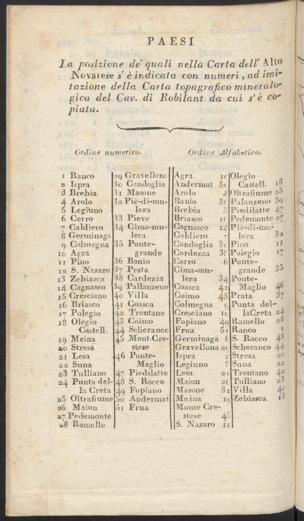 PAESI
La posizione de' quali nella Carta dell' Alto
Novarese s' è indicata con numeri, ad imi-
tazione della Carta topografico mineralo-
gica del Cav. di Robilant da cui s' è co-
piata.
Ordine numerico.
1 Ranco
2 Ispra
3 Brebia
4 Arolo
5 Legiuno
6 Cerro
7 Caldiero
8 Germinaga
9 Colmegna
10 Agrà
11 Pino
12 S. Nazaro
13 Zebiasca
14 Cagnasco
15 Cresciano
16 Briasco
17 Polegio
18 Olegio
Castell.
19 Meina
20 Stresa
21 Lesa
22 Suna
23 Tulliano
24 Punta del-
la Creta
25 Oltrafiume
26 Maion
27 Pedemonte
28 Ramello
29 Gravellona
30 Candoglia
31 Masone
32 Piè-di-mu-
lera
33 Pieve
34 Cima-mu-
lera
35 Ponte-
grande
36 Banio
37 Prata
38 Cardezza
39 Pallanzeno
40 Villa
41 Coasca
42 Trontano
43 Coimo
44 Scheranco
45 Mont.Cre-
stese
46 Ponte-
Maglio
47 Piedilatte
48 S. Rocco
49 Fopiano
50 Andermat
51 Frua
Ordine Alfabetico.
Agra 10
Andermat 50
Arolo 4
Banio 36
Brebia 3
Briasco 16
Cagnasco 14
Caldiero 7
Candoglia 30
Cardezza 38
Cerro 6
Cima-mu-
lera 34
Coasca 41
Coimo 43
Colmegna 9
Cresciano 15
Fopiano 49
Frua 51
Germinaga 8
Gravellona 29
Ispra 2
Leginno 5
Lesa 21
Maion 26
Masone 31
Meina 19
Monte Cre-
stese 45
S. Nazaro 12
Olegio
Castell. 18
Oltrafiume 25
Palanzeno 39
Piedilatte 47
Pedemonte 27
Piè-di-mu-
lera 32
Pino 11
Polegio 17
Ponte-
grande 35
Ponte-
Maglio 46
Prata 37
Punta del-
la Creta 24
Ramello 28
Ranco 1
S. Rocco 48
Scheranco 44
Stresa 20
Suna 22
Trontano 42
Tulliano 23
Villa 40
Zebiasca 13